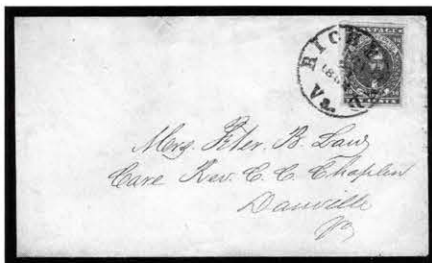 RICHM
186
Va.
Mrs. Peter. B. Law
Care Rev. C. C. Chaplin
Danville
Va